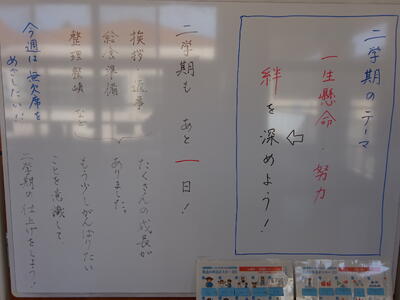 二学期のテーマ
一生懸命・努力
⇦
絆を深めよう！
二学期も あと一日！
挨拶・返事
給食準備
整理整頓 など
たくさんの成長が
ありました。
もう少しがんばりたい
ことを意識して
二学期の仕上げをしよう！
今週は無欠席を
めざしたい!!